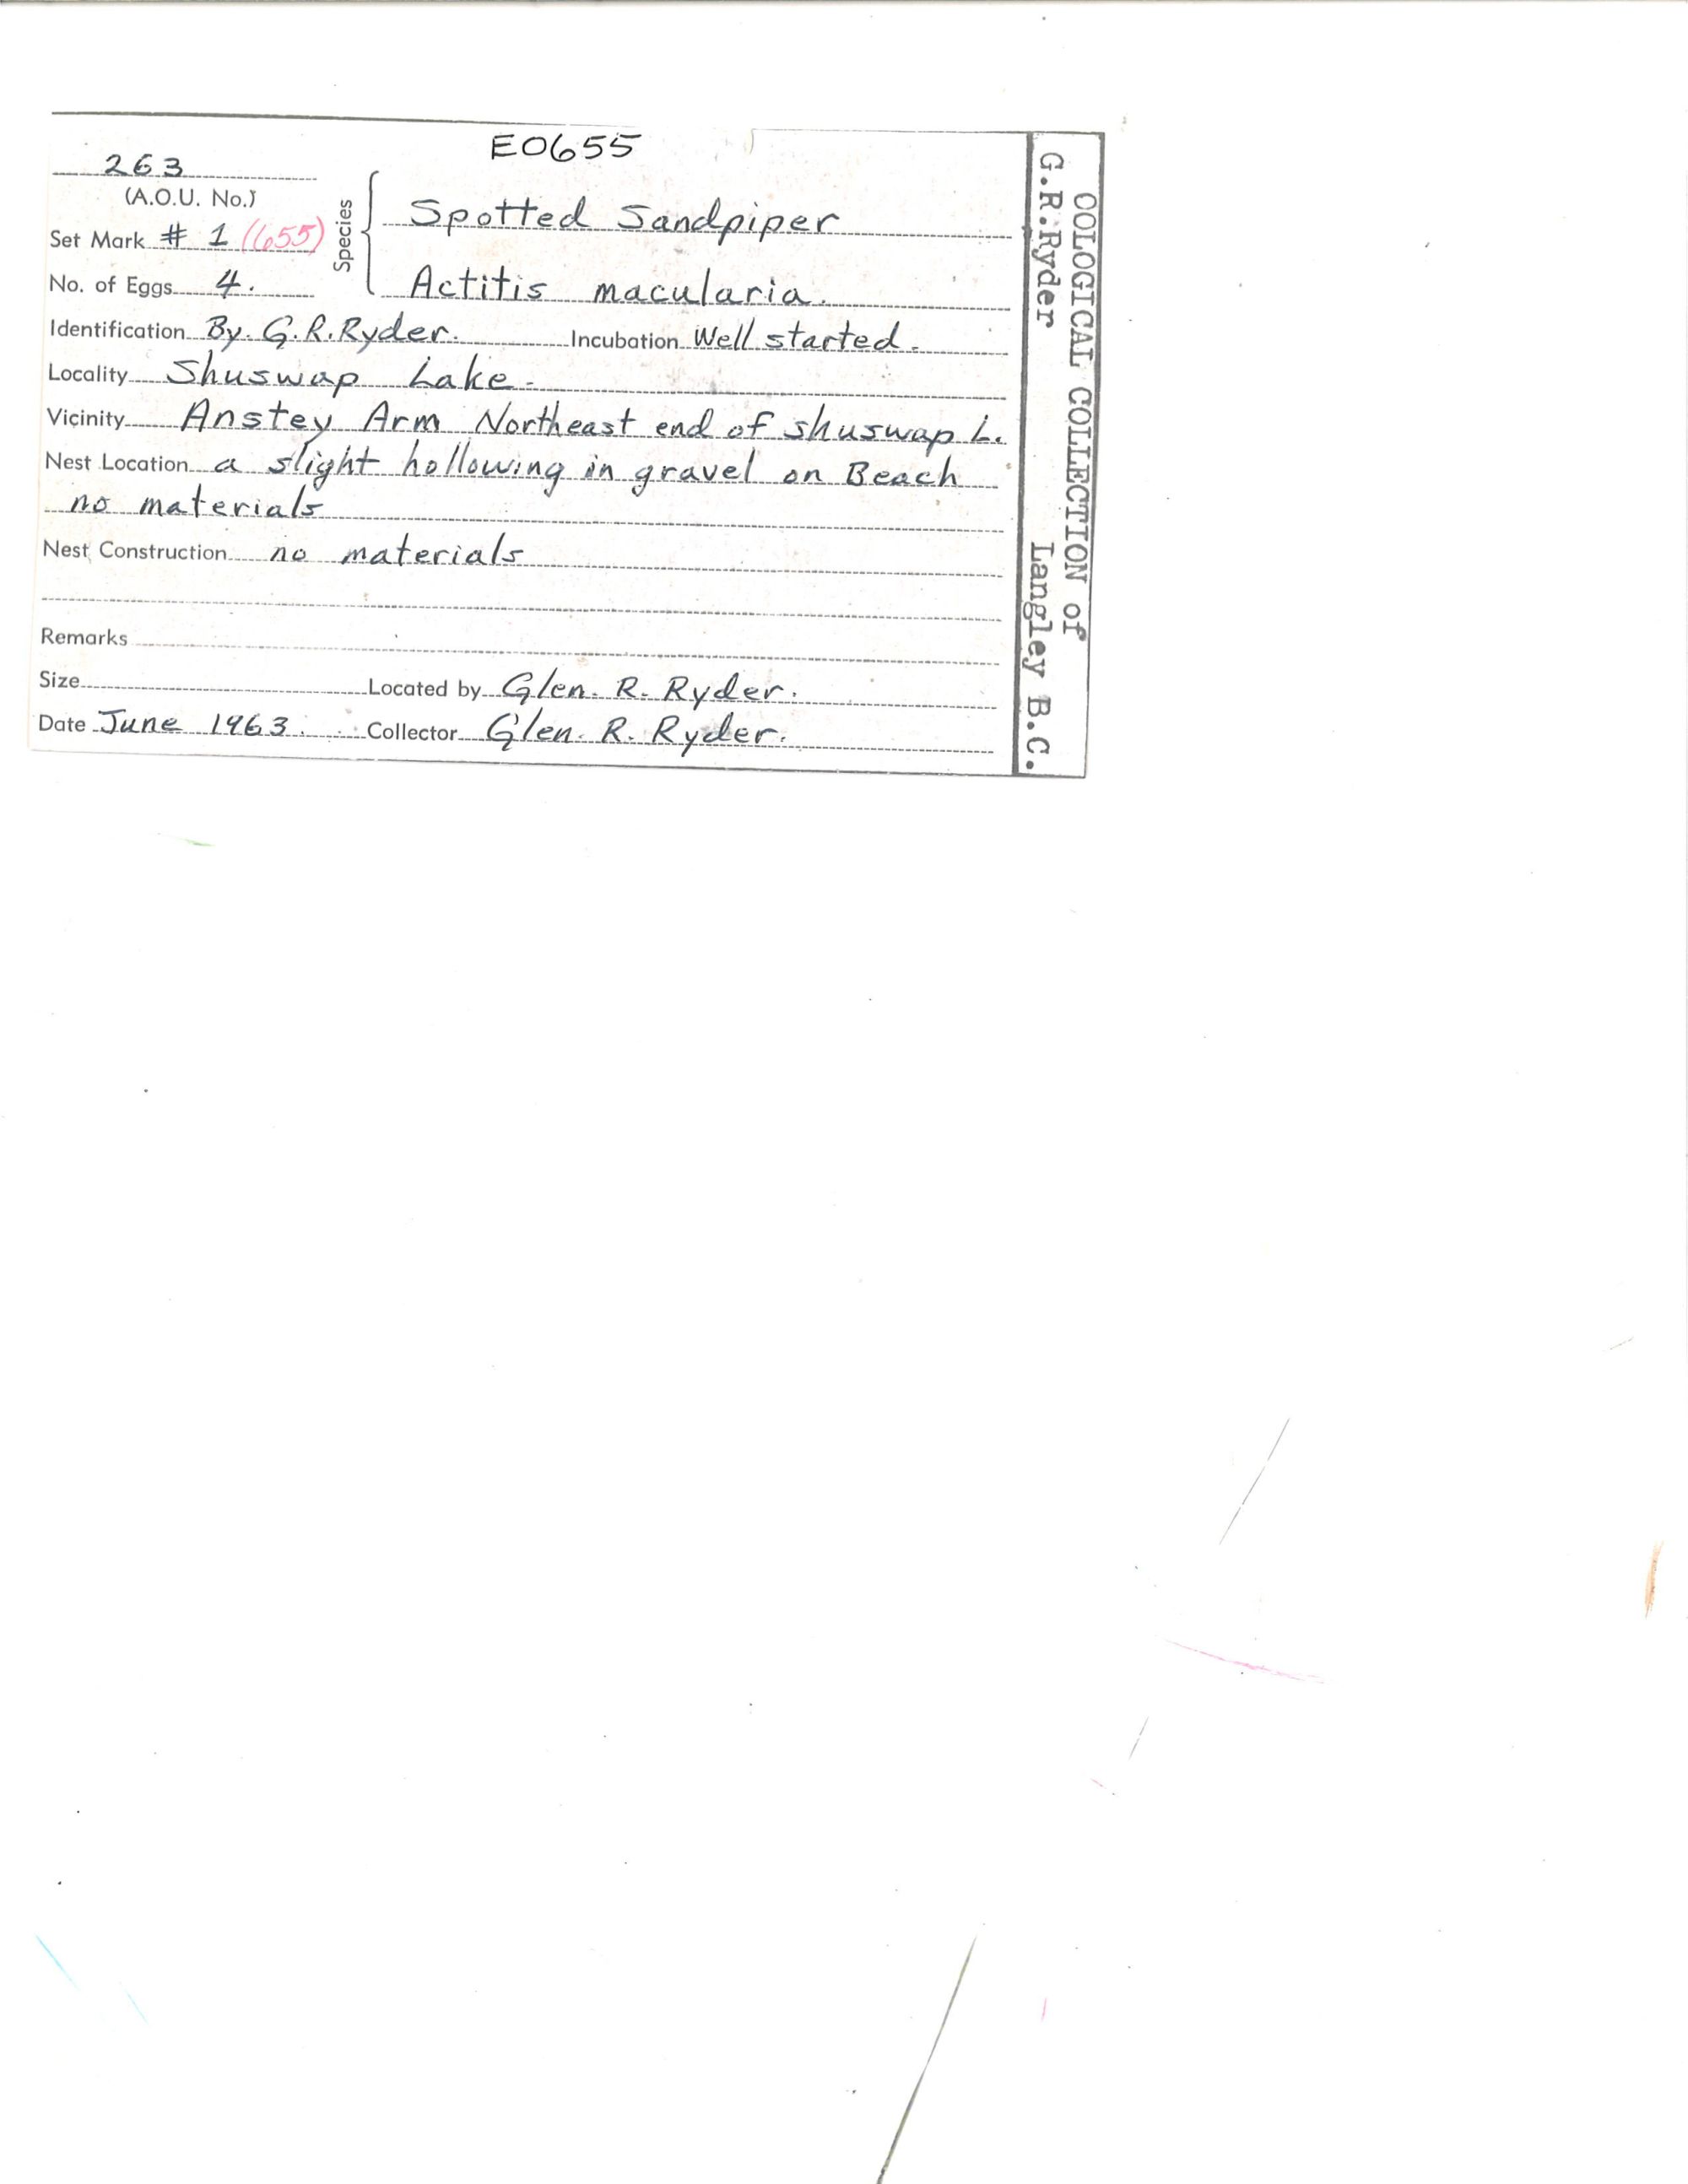 E0655
263
(A.O.U. No.)
Set Mark # 1 (655)
No. of Eggs 4.
Species
Spotted Sandpiper
Actitis macularia.
Identification By. G.R.Ryder. Incubation Well started.
Locality Shuswap Lake.
Vicinity Anstey Arm Northeast end of shuswap L.
Nest Location a slight hollowing in gravel on Beach
no materials
Nest Construction no materials
Remarks
Size Located by Glen. R. Ryder.
Date June 1963. Collector Glen. R. Ryder.
COLOGICAL COLLECTION of
G.R.Ryder Langley B.C.